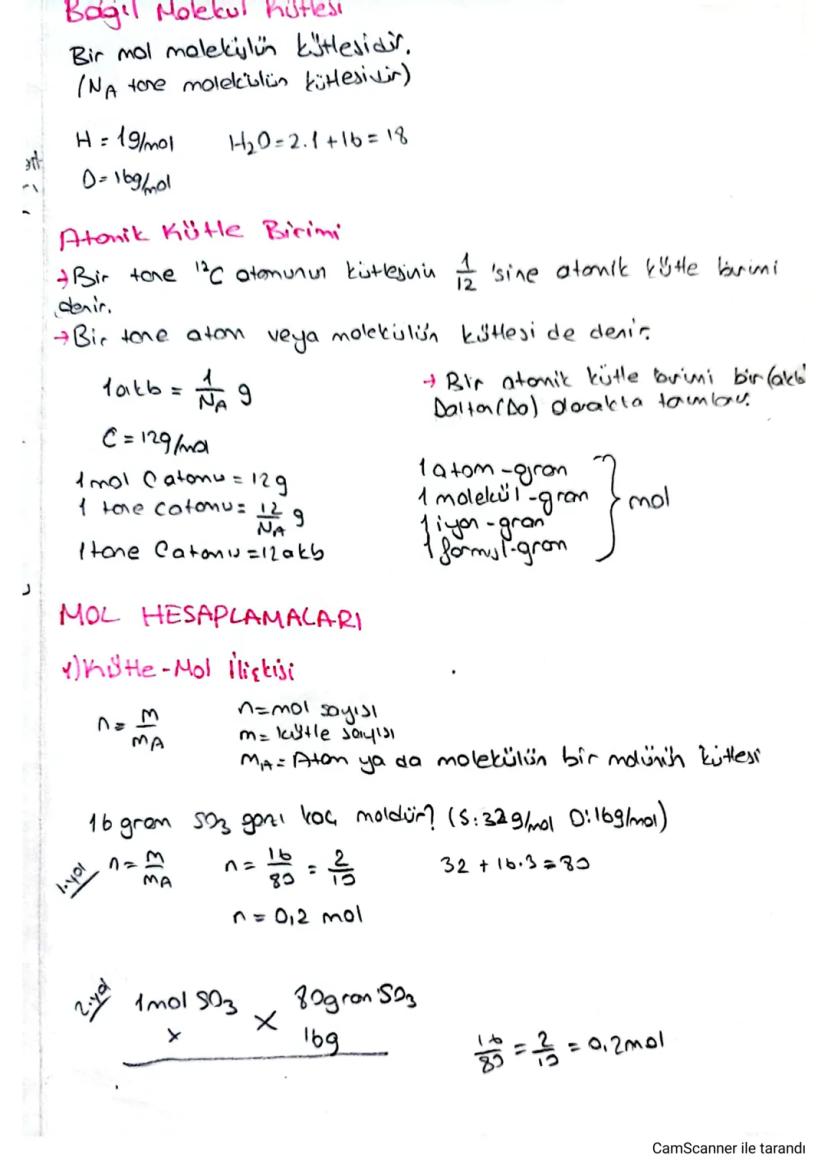 Bağıl Molekül Kütlesi
Bir mol molekülün kütlesidir.
(NA tane molekülün kütlesidir)
H = 1g/mol H₂O = 2.1 + 16 = 18
O = 16g/mol
Atomik Kütle Birimi
→ Bir tane ¹²C atomunun kütlesinin 1/12 'sine atomik kütle birimi
denir.
→ Bir tane atom veya molekülün kütlesi de denir.
1akb = 1/NA g
→ Bir atomik kütle birimi bir (akb)
Dalton (Da) olarakta tanımlanır.
C = 12g/mol
1 mol C atomu = 12g
1 tane C atomu = 12/NA g
1 tane C atomu = 12akb
1 atom-gram
1 molekül-gram
1 iyon-gram
1 formül-gram
} mol
MOL HESAPLAMALARI
1) Kütle-Mol İlişkisi
n = m/mA
n = mol sayısı
m = kütle sayısı
MA = Atom ya da molekülün bir molünün kütlesi
16 gram SO₃ gazı kaç moldür? (S: 32g/mol O: 16g/mol)
1.yol n = m/mA n = 16/80 = 2/10 32 + 16.3 = 80
n = 0,2 mol
2.yol 1mol SO₃ 80gram SO₃
x × 16g
16/80 = 2/10 = 0,2mol
CamScanner ile tarandı